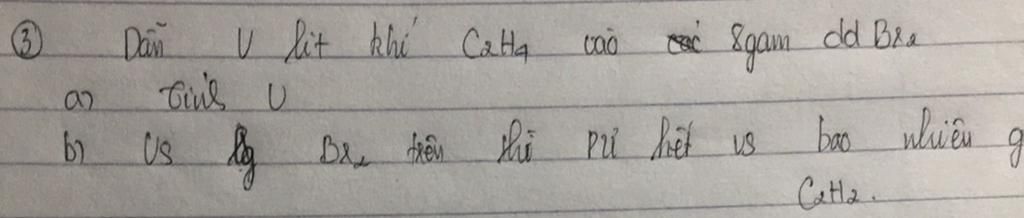 ③ Dẫn V lít khí C2H4 vào 8gam dd Br2
a) Tính V
b) Vs lg Br2 trên thì pứ hết vs bao nhiêu g
C2H2.